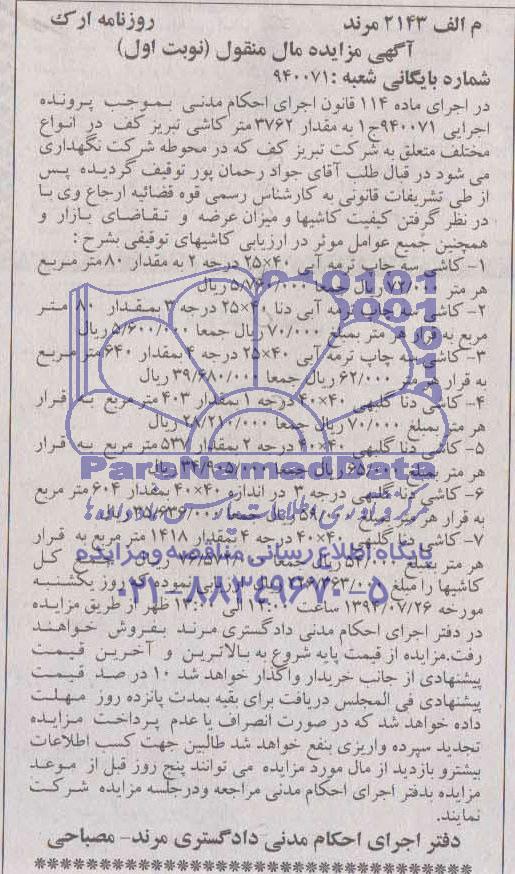 م الف ۲۱۴۳ مرند روزنامه ارک
آگهی مزایده مال منقول (نوبت اول)
شماره بایگانی شعبه : ۹۴۰۰۷۱
در اجرای ماده ۱۱۴ قانون اجرای احکام مدنی بموجب پرونده
اجرایی ۹۴۰۰۷۱ج۱ به مقدار ۳۷۶۲ متر کاشی تبریز کف در انواع
مختلف متعلق به شرکت تبریز کف که در محوطه شرکت نگهداری
می شود در قبال طلب آقای جواد رحمان پور توقیف گردیده پس
از طی تشریفات قانونی به کارشناس رسمی قوه قضائیه ارجاع وی با
در نظر گرفتن کیفیت کاشیها و میزان عرضه و تقاضای بازار و
همچنین جمیع عوامل موثر در ارزیابی کاشیهای توقیفی بشرح :
۱- کاشی سه چاپ ترمه آبی ۴۰×۲۵ درجه ۲ به مقدار ۸۰ متر مربع
هر متر ۷۲/۰۰۰ ریال جمعا ۵/۷۶۰/۰۰۰ ریال
۲- کاشی سه چاپ ترمه آبی دنا ۴۰×۲۵ درجه ۳ بمقدار ۸۰ متر
مربع به قرار هر متر بمبلغ ۷۰/۰۰۰ ریال جمعا ۵/۶۰۰/۰۰۰ ریال
۳- کاشی سه چاپ ترمه آبی ۴۰×۲۵ درجه ۴ بمقدار ۶۴۰ متر مربع
به قرار هر متر ۶۲/۰۰۰ ریال جمعا ۳۹/۶۸۰/۰۰۰ ریال
۴- کاشی دنا گلبهی ۴۰×۴۰ درجه ۱ بمقدار ۴۰۳ متر مربع به قرار
هر متر بمبلغ ۷۰/۰۰۰ ریال جمعا ۲۸/۲۱۰/۰۰۰ ریال
۵- کاشی دنا گلبهی ۴۰×۴۰ درجه ۲ بمقدار ۵۳۷ متر مربع به قرار
هر متر بمبلغ ۶۵/۰۰۰ ریال جمعا ۳۴/۹۰۵/۰۰۰ ریال
ParsNamadData
۶- کاشی دنا گلبهی درجه ۳ در اندازه ۴۰×۴۰ بمقدار ۶۰۴ متر مربع
به قرار هر متر بمبلغ ۵۹/۰۰۰ ریال جمعا ۳۵/۶۳۶/۰۰۰ ریال
۷- کاشی دنا گلبهی ۴۰×۴۰ درجه ۴ بمقدار ۱۴۱۸ متر مربع به قرار
پایگاه اطلاع رسانی مناقصه و مزایده
هر متر بمبلغ ۵۴/۰۰۰ ریال جمعا ۷۶/۵۷۲/۰۰۰ ریال جمع کل
کاشیها را مبلغ ۲۲۶/۳۶۳/۰۰۰ ریال ارزیابی نموده که روز یکشنبه
۰۲۱-۸۸۳۴۹۶۷۰-۵
مورخه ۱۳۹۴/۰۷/۲۶ ساعت ۱۲:۰۰ الی ۱۳:۰۰ ظهر از طریق مزایده
در دفتر اجرای احکام مدنی دادگستری مرند بفروش خواهند
رفت.مزایده از قیمت پایه شروع به بالاترین و آخرین قیمت
پیشنهادی از جانب خریدار واگذار خواهد شد ۱۰ در صد قیمت
پیشنهادی فی المجلس دریافت برای بقیه بمدت پانزده روز مهلت
داده خواهد شد که در صورت انصراف یا عدم پرداخت مزایده
تجدید سپرده واریزی بنفع خواهد شد طالبین جهت کسب اطلاعات
بیشترو بازدید از مال مورد مزایده می توانند پنج روز قبل از موعد
مزایده بدفتر اجرای احکام مدنی مراجعه ودرجلسه مزایده شرکت
نمایند.
دفتر اجرای احکام مدنی دادگستری مرند- مصباحی